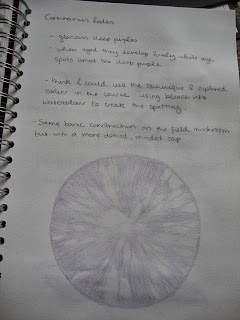 Cortinarius
- glorious deep purples
when aged they develop lovely white age
spots amid the deep purple
- think I could use the technique I explored
earlier in the course using bleach into
watercolour to create the spotting
- Same basic construction as the field mushroom
but with a more domed, rounded cap